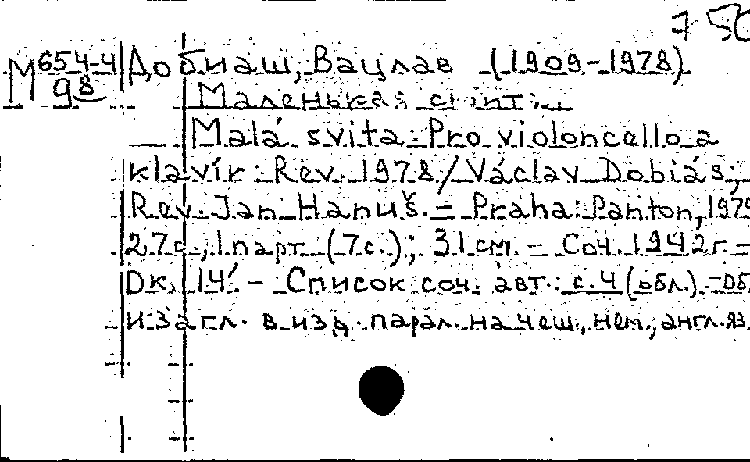 7 50
М 654-4 Добиаш, Вацлав (1909-1978)
98 Маленькая
Malá svita: Pro violoncello a
klavír: Rev. 1978 / Václav Dobiáš;
Rev. Jan Hanuš. - Praha: Panton, 1979
27 с., 1 парт. (7 с.); 31 см. - Соч. 1942 г. -
Dк. 14'. - Список соч. авт.: с. 4 (обл.). - Об
и загл. в изд. парал. на чеш., нем., англ. яз